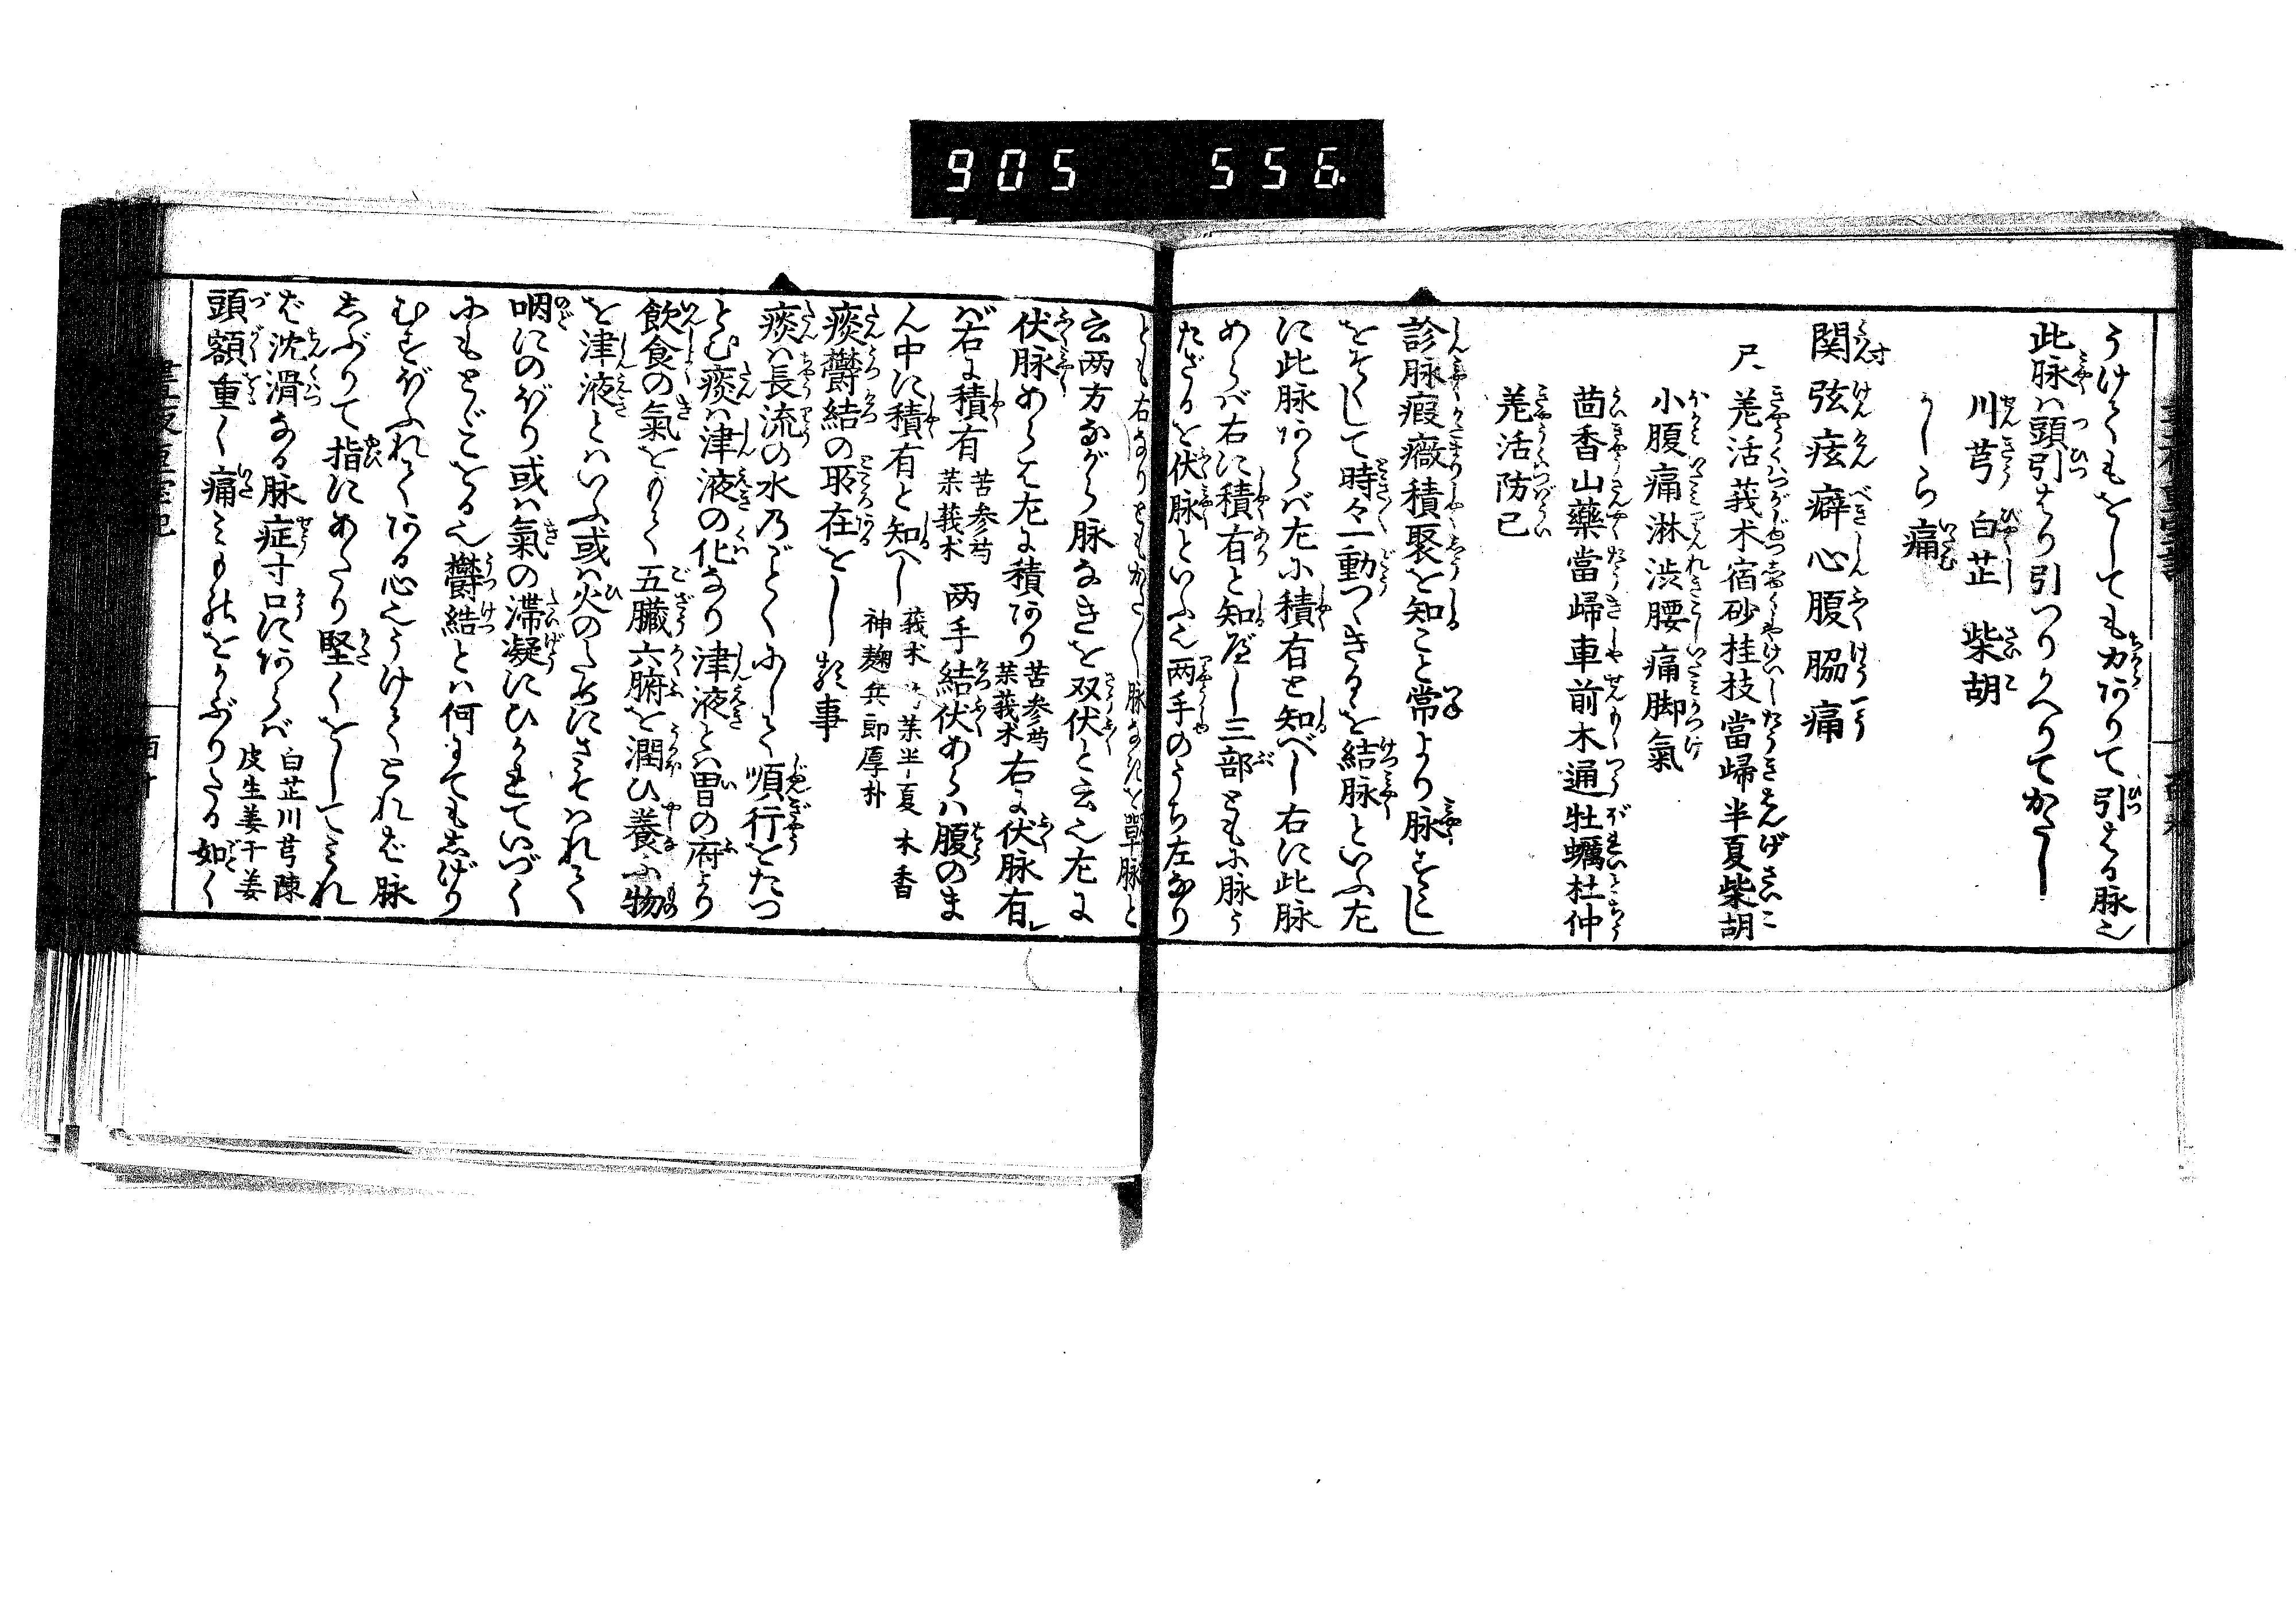 905 556.
うけてもをしても力ありて引はる脉也
此脉は頭引はり引つりかへりてかたし
川芎 白芷 柴胡
かしら痛
寸
関 弦痃癖心腹脇痛
尺 羗活莪朮宿砂桂枝當歸半夏柴胡
小腹痛淋渋腰痛脚氣
茴香山藥當歸車前木通牡蠣杜仲
羗活防已
診脉瘕癥積聚を知こと常より脉すこし
をそくして時々一動つゝきるを結脉といふ左
に此脉あらば左に積有と知べし右に此脉
あらバ右に積有と知べし三部ともに脉う
たざるを伏脉といふ也両手のうち左なり
とも右なりともかたし脉なきを単脉と
云両方ながら脉なきを双伏と云也左に
伏脉あらは左に積あり 苦参芍藥莪朮 右に伏脉有
ば右に積有 苦参芍藥莪朮 両手結伏あらハ腹のま
ん中に積有と知へし 莪朮 藥半夏木香神麹兵郎厚朴
痰欝結の所在をしる事
痰は長流の水乃ごとくにして順行をたつ
とむ痰は津液の化なり津液とは胃の府より
飲食の氣をひて五臓六腑を潤ひ養ふ物
を津液とはいふ或は火のためにさそはれて
咽にのぼり或は氣の滞凝にひかされていづく
にもとどこをる也欝結とは何にても志げり
むすぼふれてある心也うけてこれば脉
志ぶりて指にあたり堅くをしてこれ
ば沈滑なる脉症寸口にあらバ 白芷川芎陳皮生姜干姜
頭額重く痛こものをかぶりたる如く